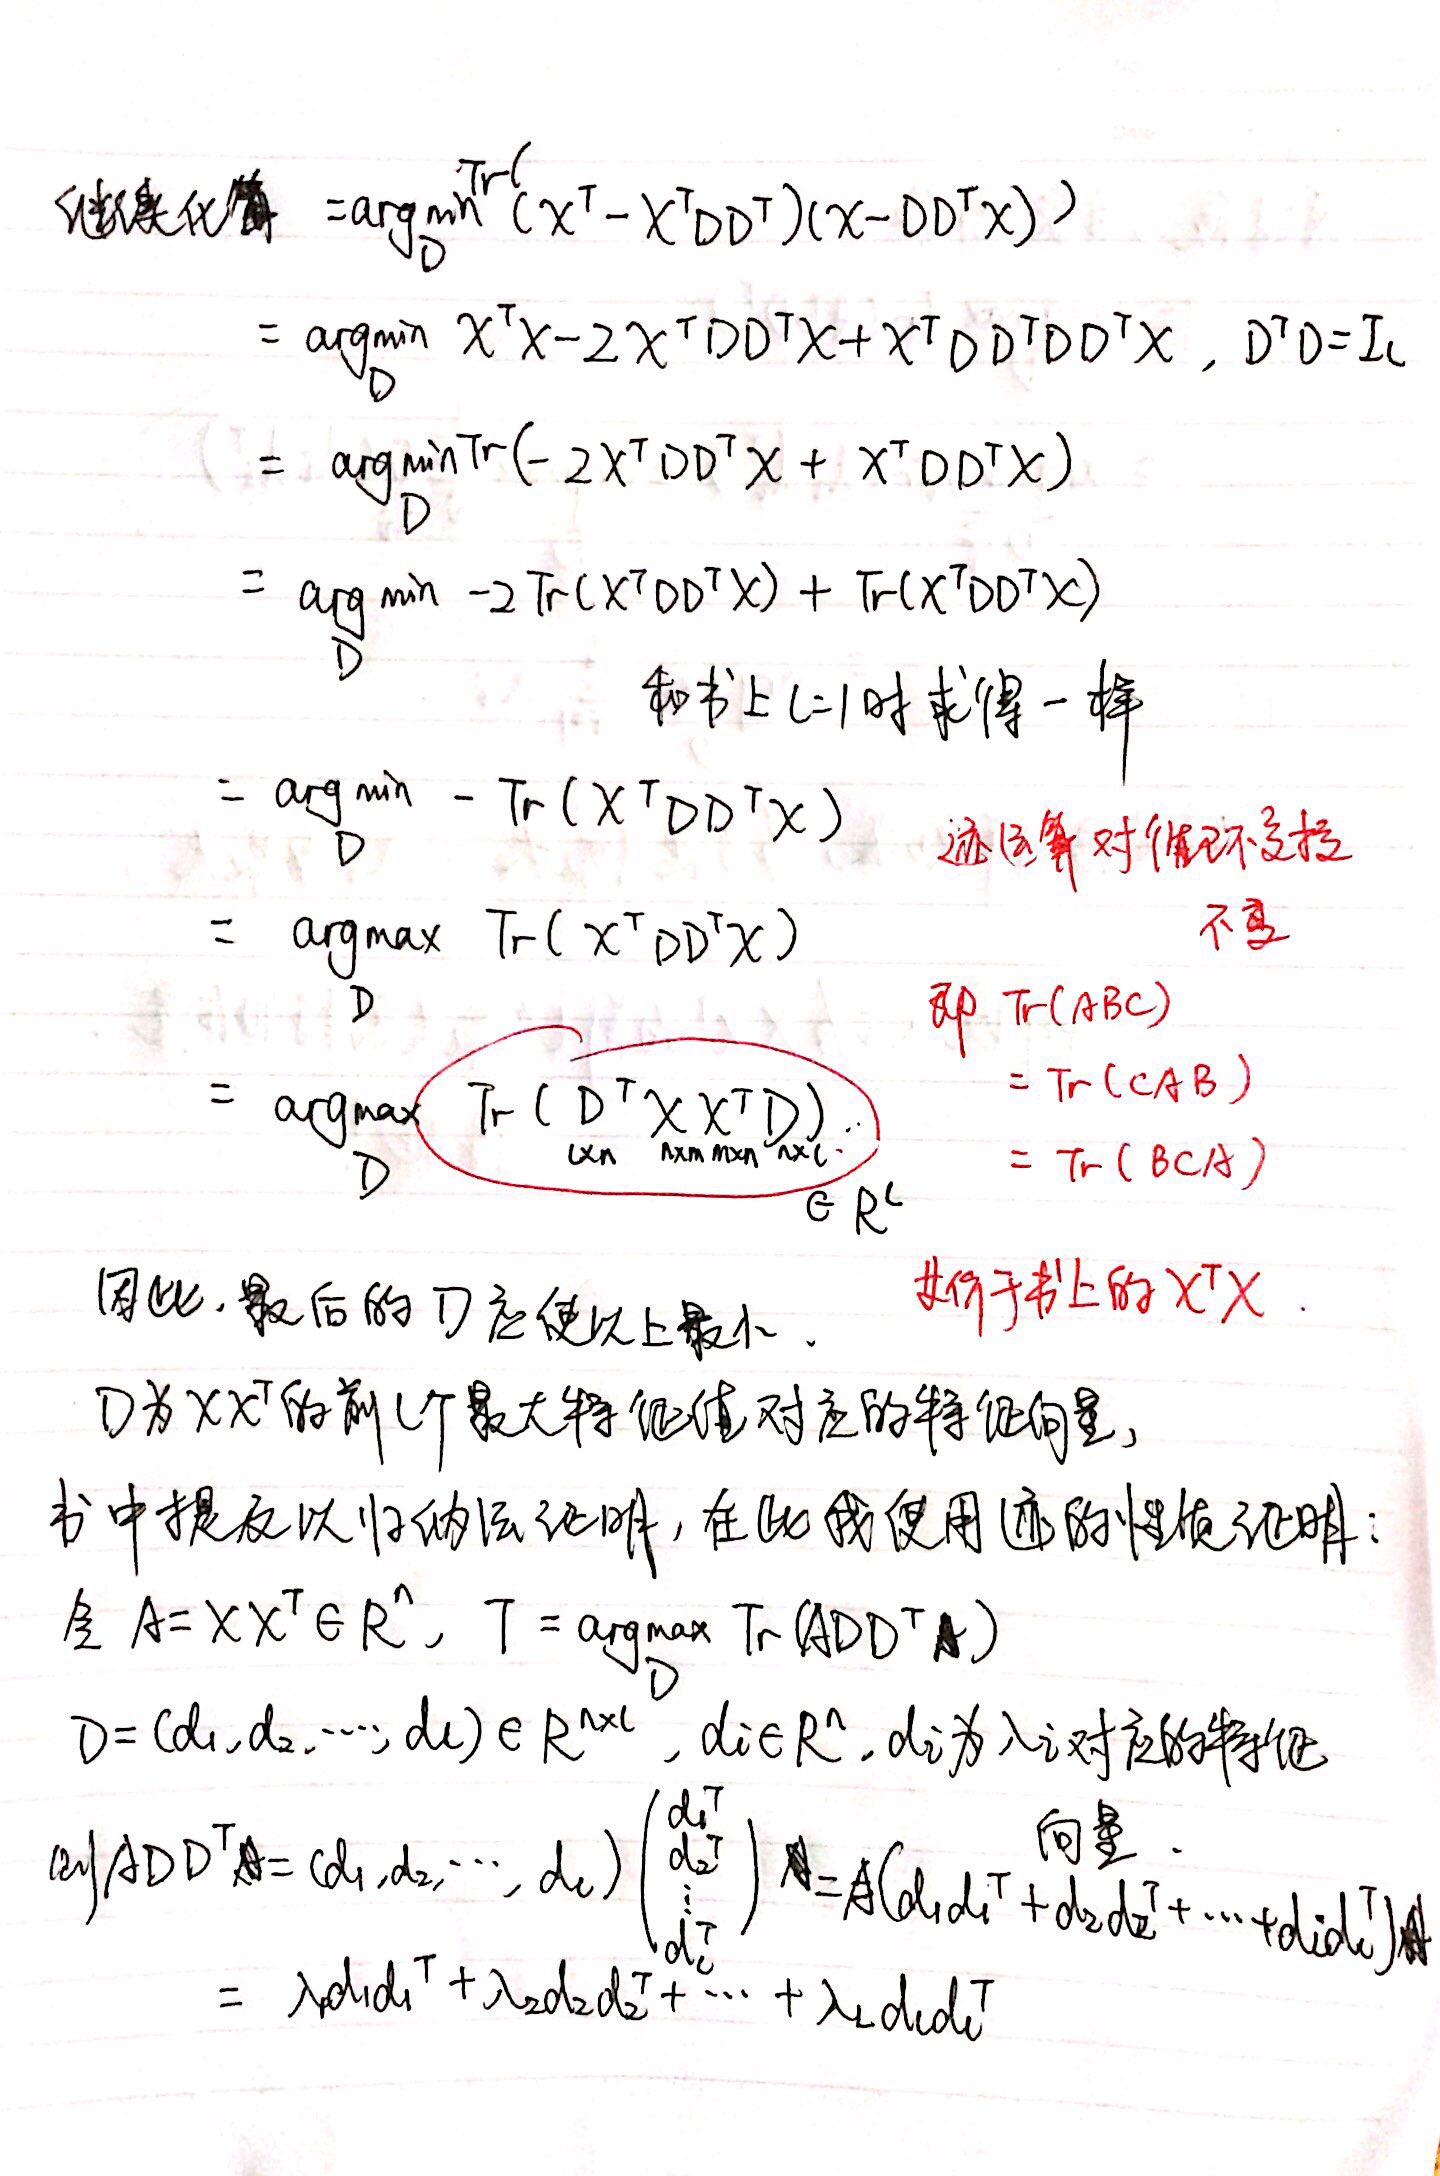 继续化简 = argmin_D Tr((X^T - X^T DD^T)(X - DD^T X))
= argmin_D X^T X - 2X^T DD^T X + X^T DD^T DD^T X , D^T D = I_l
= argmin_D Tr(-2X^T DD^T X + X^T DD^T X)
= argmin_D -2Tr(X^T DD^T X) + Tr(X^T DD^T X)
和书上 l=1时求得一样
= argmin_D - Tr(X^T DD^T X)
迹运算对循环交换
不变
= argmax_D Tr(X^T DD^T X)
即 Tr(ABC)
= Tr(CAB)
= argmax_D Tr(D^T X X^T D)
l×n n×m m×n n×l
= Tr(BCA)
∈ R^l
因此,最后的D应使以上最小.
等价于书上的 X^T X .
D为XX^T的前l个最大特征值对应的特征向量,
书中提及以归纳法证明,在此我使用迹的性质证明:
令 A = XX^T ∈ R^n, T = argmax_D Tr(ADD^T)
D = (d1, d2, ..., dl) ∈ R^{n×l} , di ∈ R^n, di为λi对应的特征
向量.
则 ADD^T = (d1, d2, ..., dl) (d1^T d2^T ⋮ dl^T) = A(d1d1^T + d2d2^T + ... + dldl^T)
= λ1d1d1^T + λ2d2d2^T + ... + λldldl^T